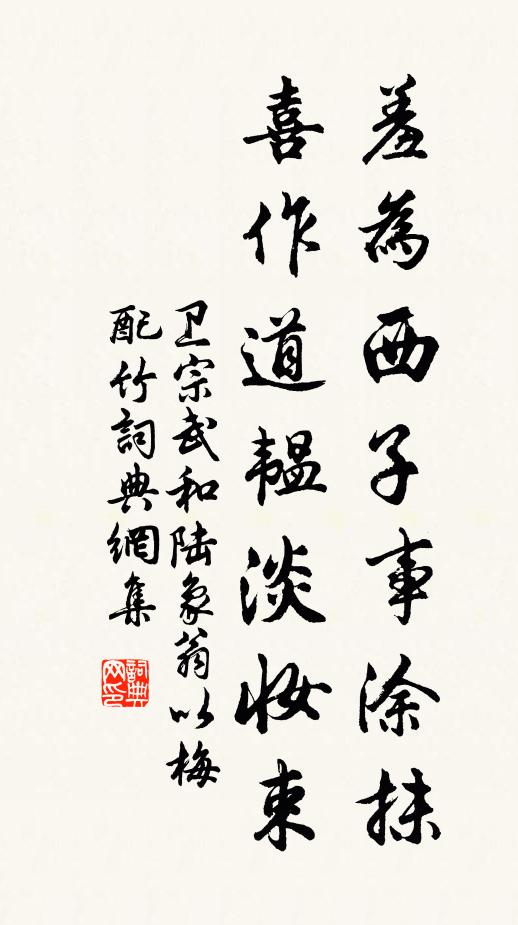 羞為西子事涂抹
喜作道韞淡妝束
卫宗武和陆象翁以梅
配竹詞典網集
詞典网印